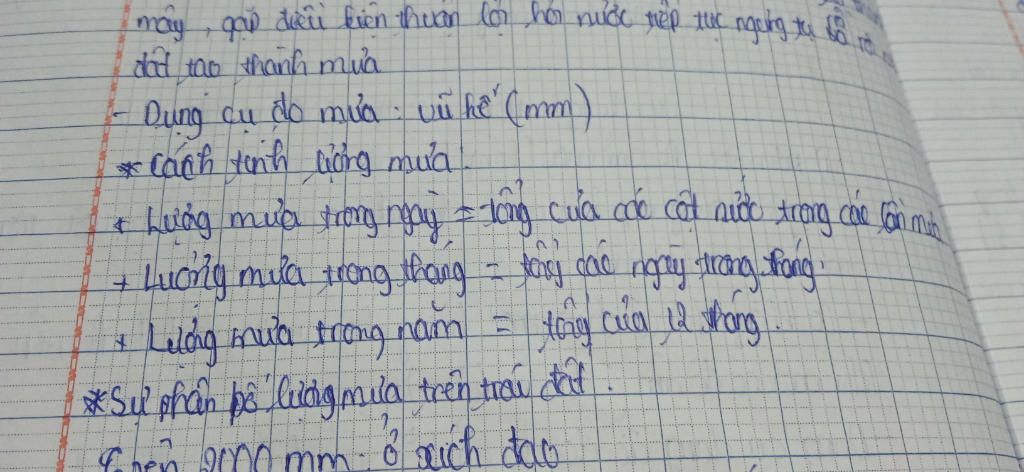 mây, gặp điều kiện thuận lợi hơi nước tiếp tục ngưng tụ
đất tạo thành mưa
- Dụng cụ đo mưa: vũ kế (mm)
* Cách tính lượng mưa.
+ Lượng mưa trong ngày = tổng của các cột nước trong các lần mưa
+ Lượng mưa trong tháng = tổng các ngày trong tháng.
+ Lượng mưa trong năm = tổng của 12 tháng.
* Sự phân bố lượng mưa trên trái đất.
2000 mm. Ở xích đạo